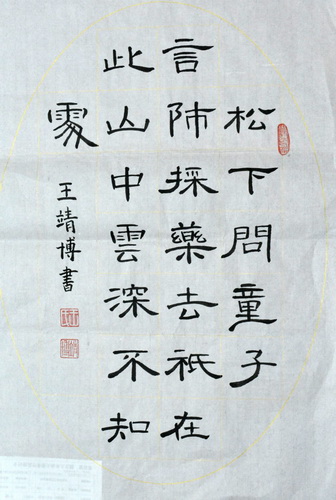 松下問童子
言師採藥去祇在
此山中雲深不知
處
王靖博書